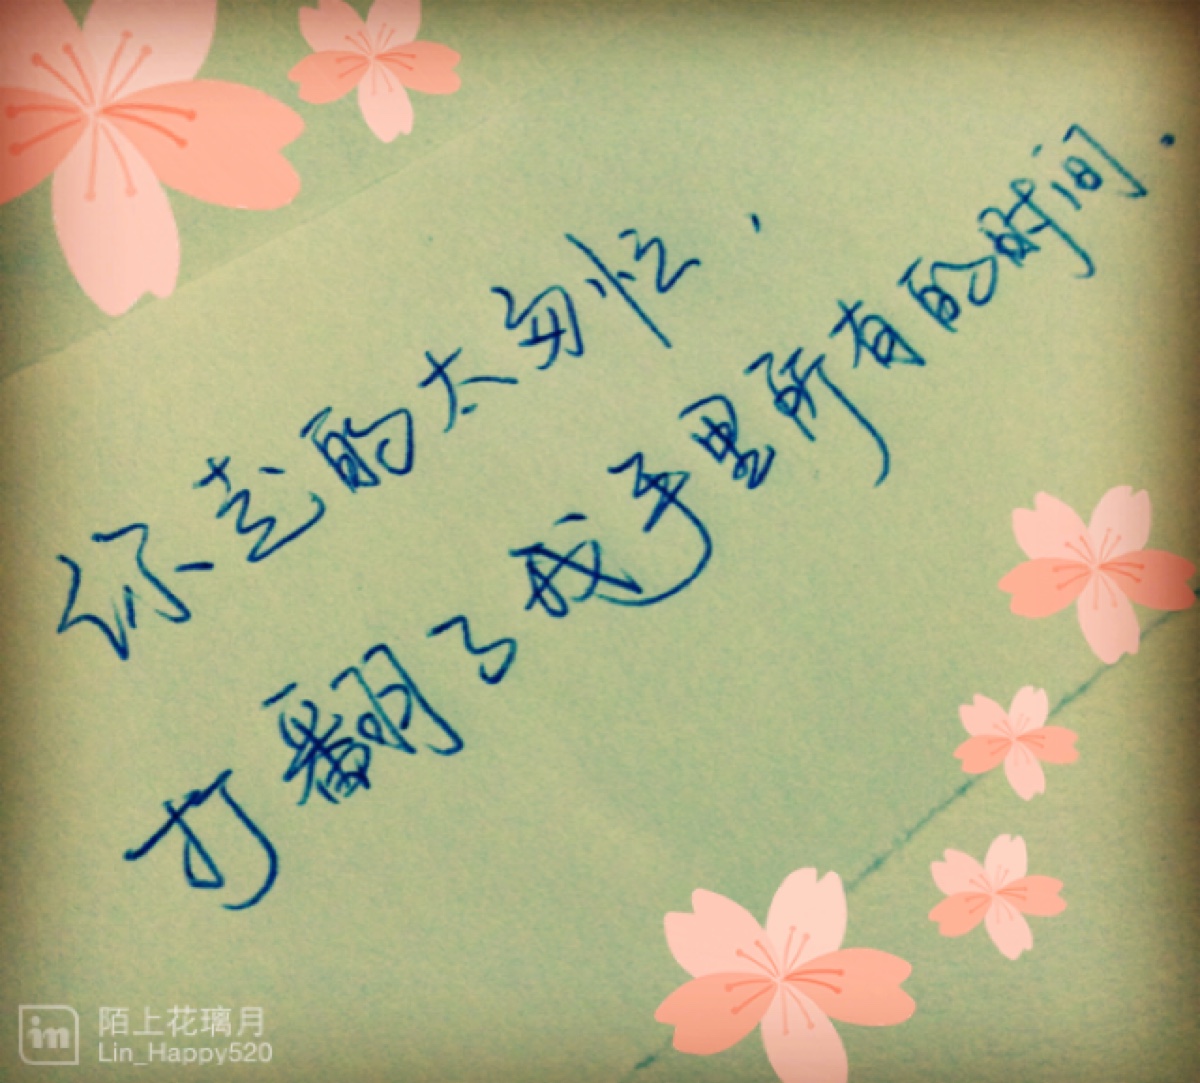 你走的太匆忙，
打翻了我手里所有的时间.
陌上花璃月
Lin_Happy520